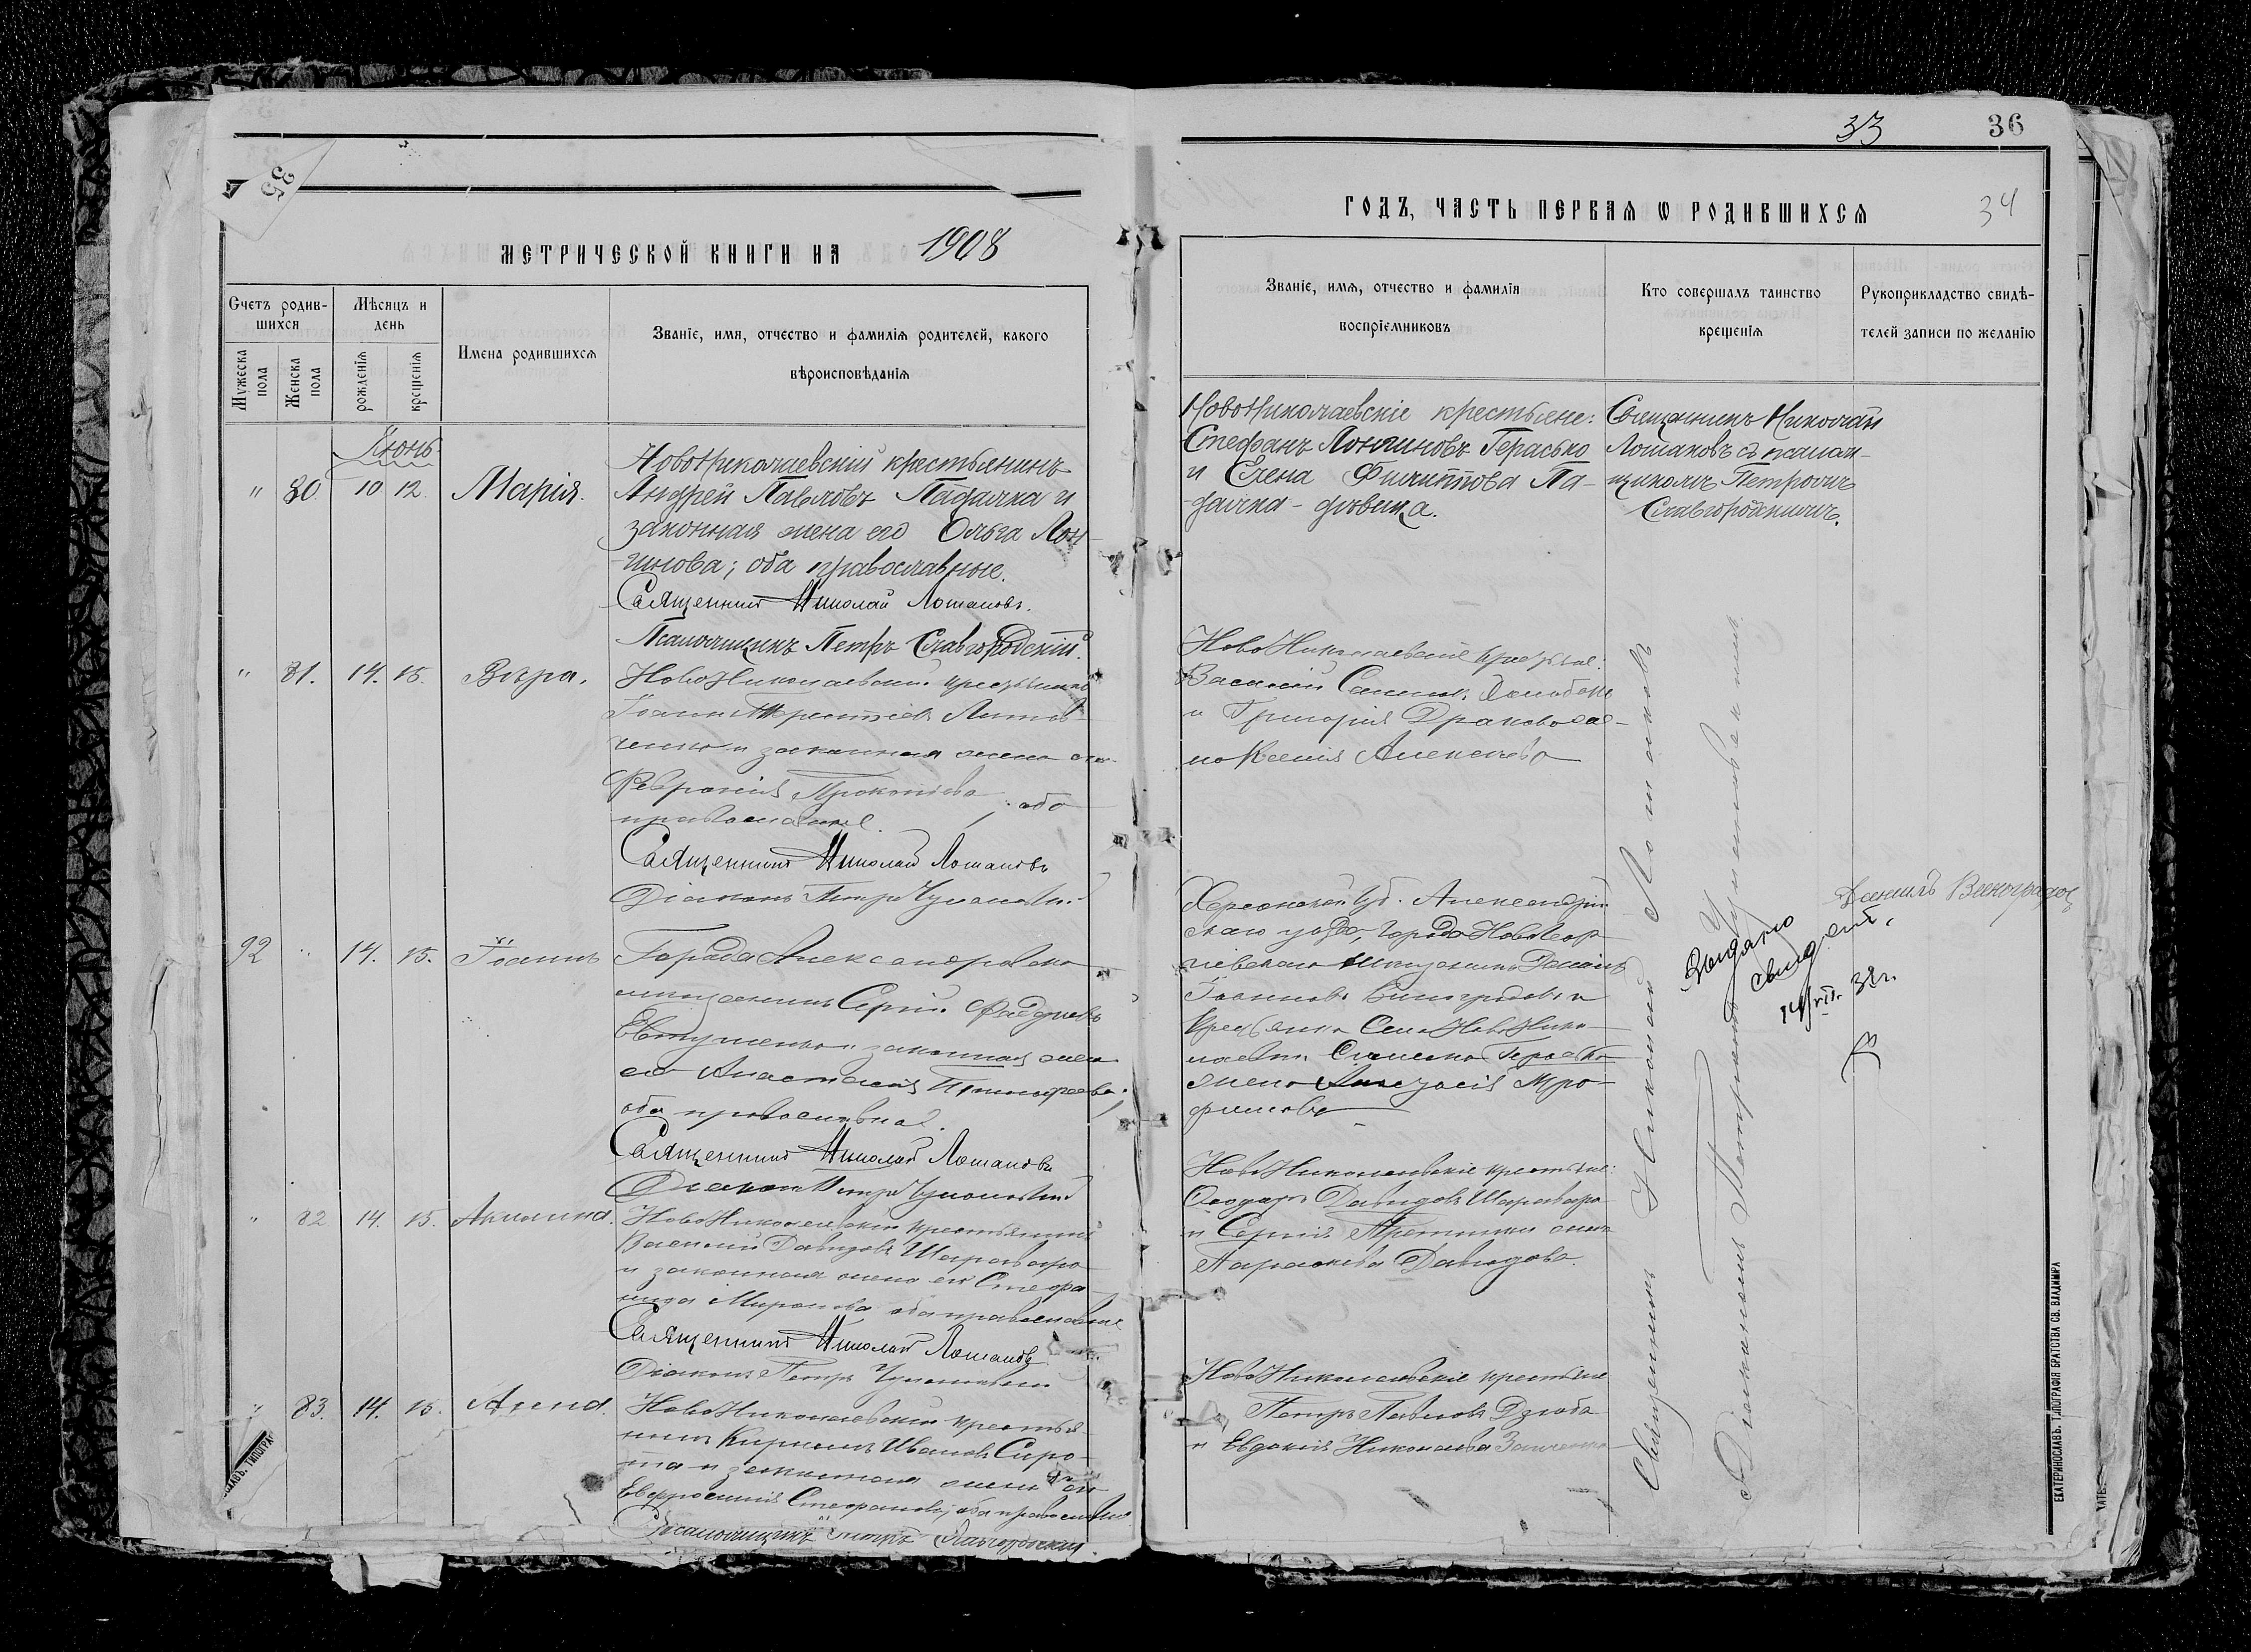 35
МЕТРИЧЕСКОЙ КНИГИ НА 1908
Счетъ родив-
шихся
Мѣсяцъ и
день
Мужеска
пола
Женска
пола
рожденія
крещенія
Имена родившихся
Званіе, имя, отчество и фамилія родителей, какого
вѣроисповѣданія
Іюнь
" 80 10 12 Марія.
Новониколаевскій крестьянинъ
Андрей Павловъ Падалка и
законная жена его Ольга Лон-
гинова; оба православные.
Священникъ Николай Лошаковъ.
Псаломщикъ Петръ Славгородскій.
" 81. 14. 15. Вѣра.
НовоНиколаевскій крестьянинъ
Іоаннъ Терентіевъ Литов-
ченко и законная жена его
Февронія Прокопіева; оба
православные.
Священникъ Николай Лошаковъ
Діаконъ Петръ
92 " 14. 15. Іоаннъ
Города Александровска
мещанинъ Сергій Фаддеевъ
Евтушенко и законная жена
его Анастасія Тимофеева;
оба православные.
Священникъ Николай Лошаковъ
Діаконъ Петръ
" 82 14. 15. Акилина.
НовоНиколаевскій крестьянинъ
Василий Давидовъ Шаравара
и законная жена его Стефа-
нида Миронова оба православные
Священникъ Николай Лошаковъ
Діаконъ Петръ
" 83. 14. 15. Анна.
НовоНиколаевскій крестья-
нинъ Кириллъ Ивановъ Сиро-
та и законная жена его
Евфросинія Стефанова; оба православные
Псаломщикъ Петръ Славгородскій.
33
36
34
ГОДЪ, ЧАСТЬ ПЕРВАЯ Ѡ РОДИВШИХСЯ
Званіе, имя, отчество и фамилія
воспріемниковъ
Кто совершалъ таинство
крещенія
Рукоприкладство свидѣ-
телей записи по желанію
Новониколаевскіе крестьяне:
Стефанъ Лонгиновъ Герасько
и Елена Филиппова Па-
далка - дѣвица.
Священникъ Николай
Лошаковъ съ псалом-
щикомъ Петромъ
Славгородскимъ.
НовоНиколаевскіе крестьяне:
Василій
и Григорія
Ксенія Алексѣева
Херсонской губ. Александрій-
скаго уѣзда, города НовоГеор-
гіевска мещанинъ Даніилъ
Іоанновъ Виноградовъ и
крестьянка села НовоНико-
лаевки Герасько
жена Анастасія Тро-
фимова
НовоНиколаевскіе крестьяне:
Феодоръ Давидовъ Шаравара
и Сергія жена
Параскева Давидова.
НовоНиколаевскіе крестьяне
Петръ Павловъ Дзюба
и Евдокія Николаева
Священникъ Николай Лошаковъ
съ Діакономъ Петромъ
Даниилъ Виноградовъ
Выдано
свидет.
38г.
ЕКАТЕРИНОСЛАВЪ. ТИПОГРАФІЯ БРАТСТВА СВ. ВЛАДИМІРА